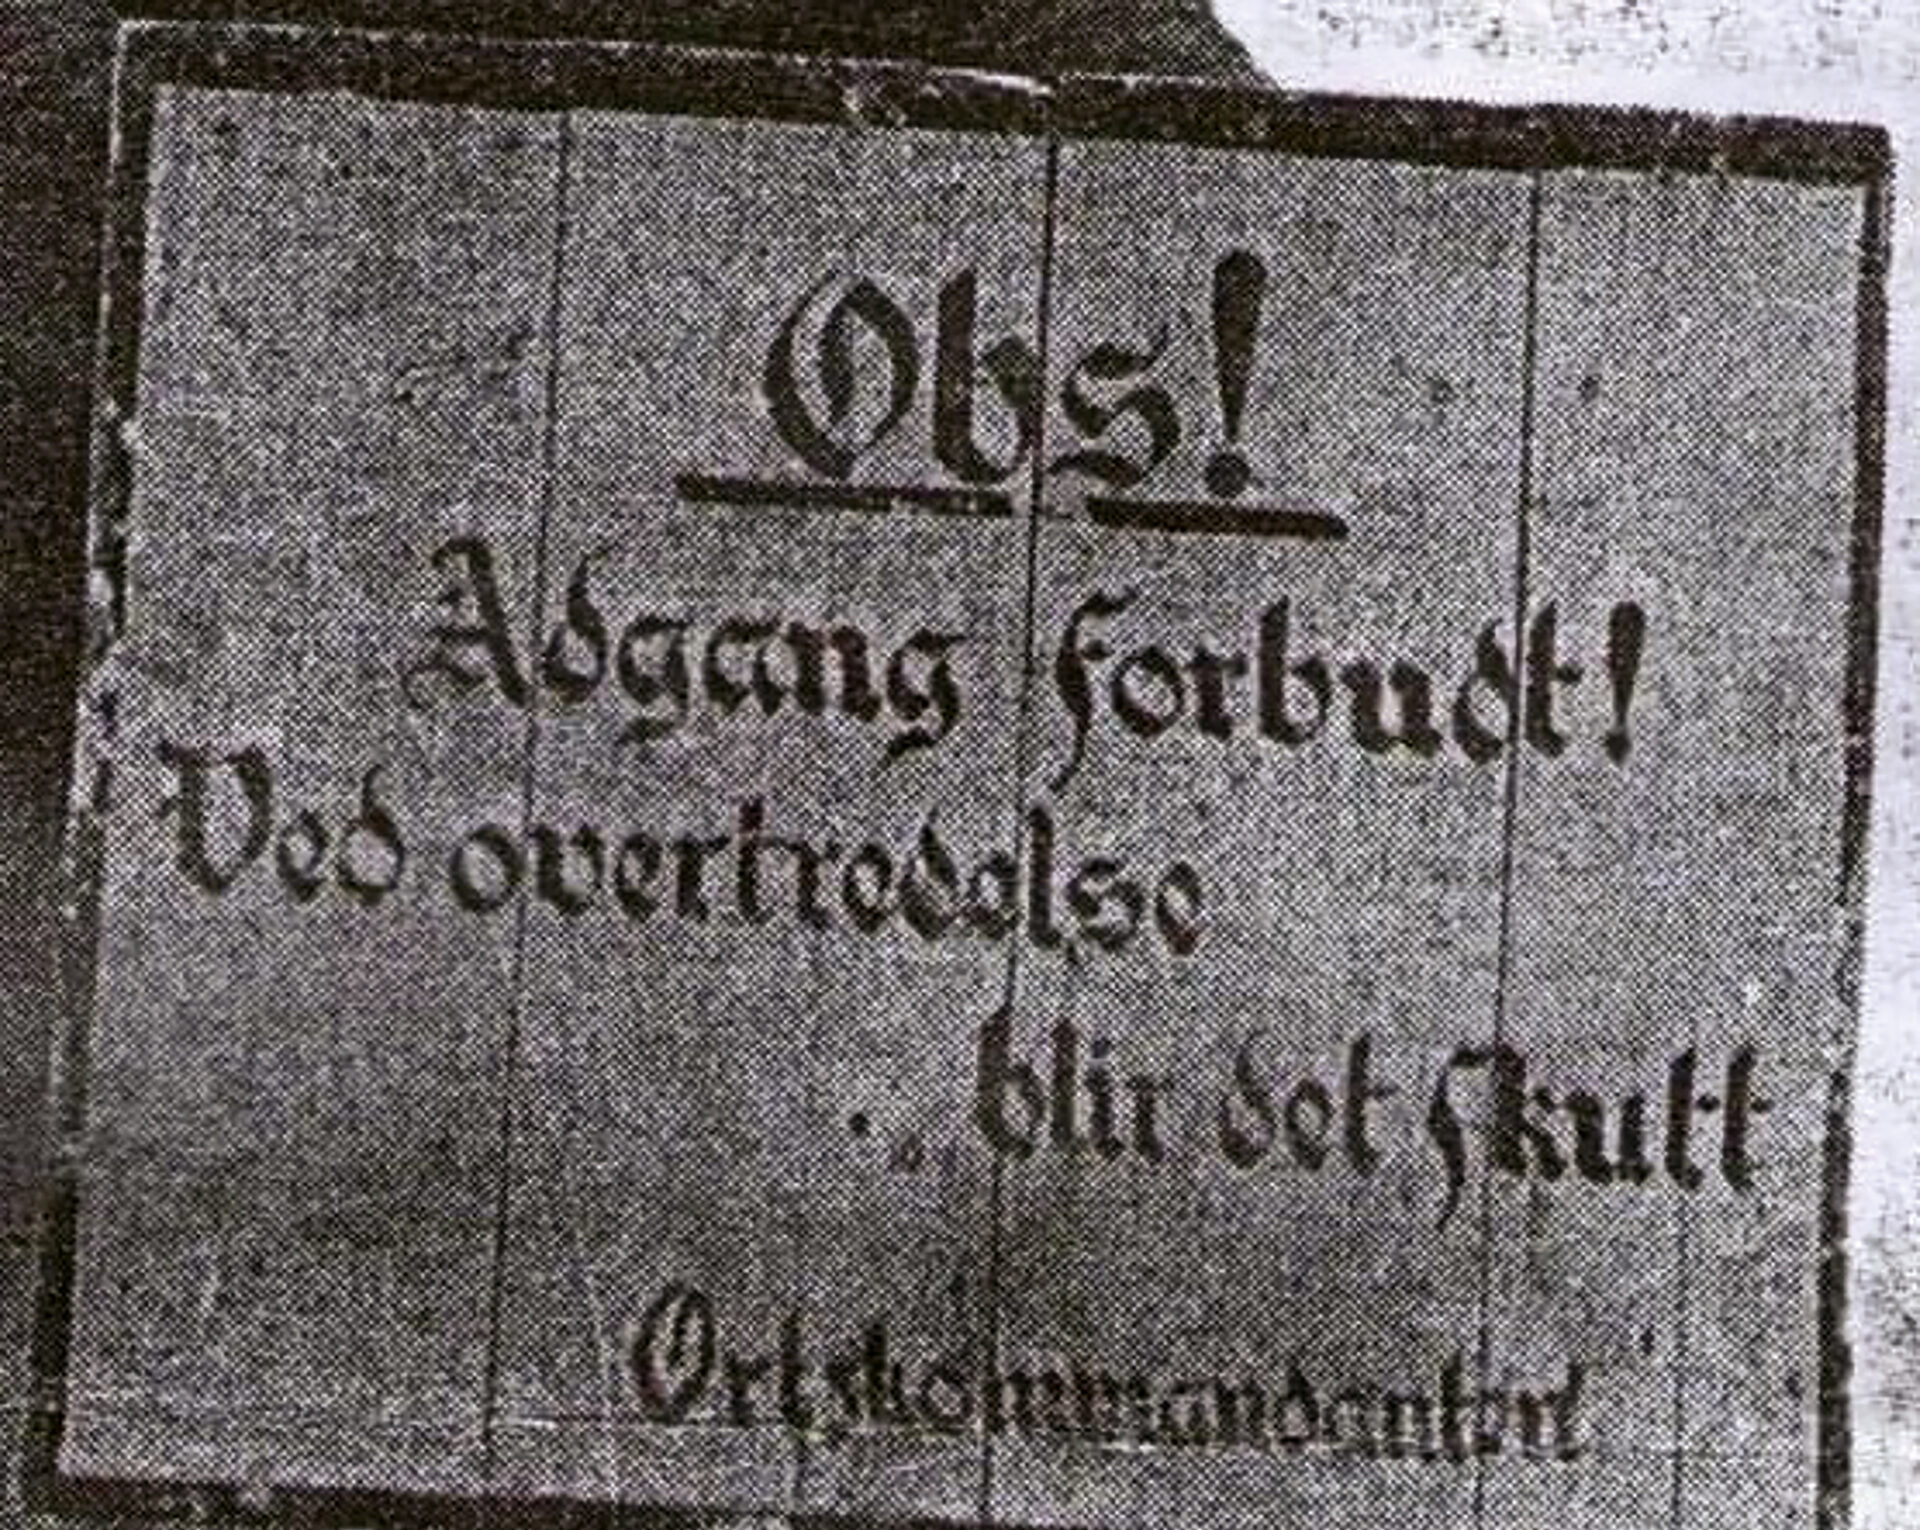 Obs!
Adgang forbudt!
Ved overtredelse
blir det skutt
Ortskommandantur